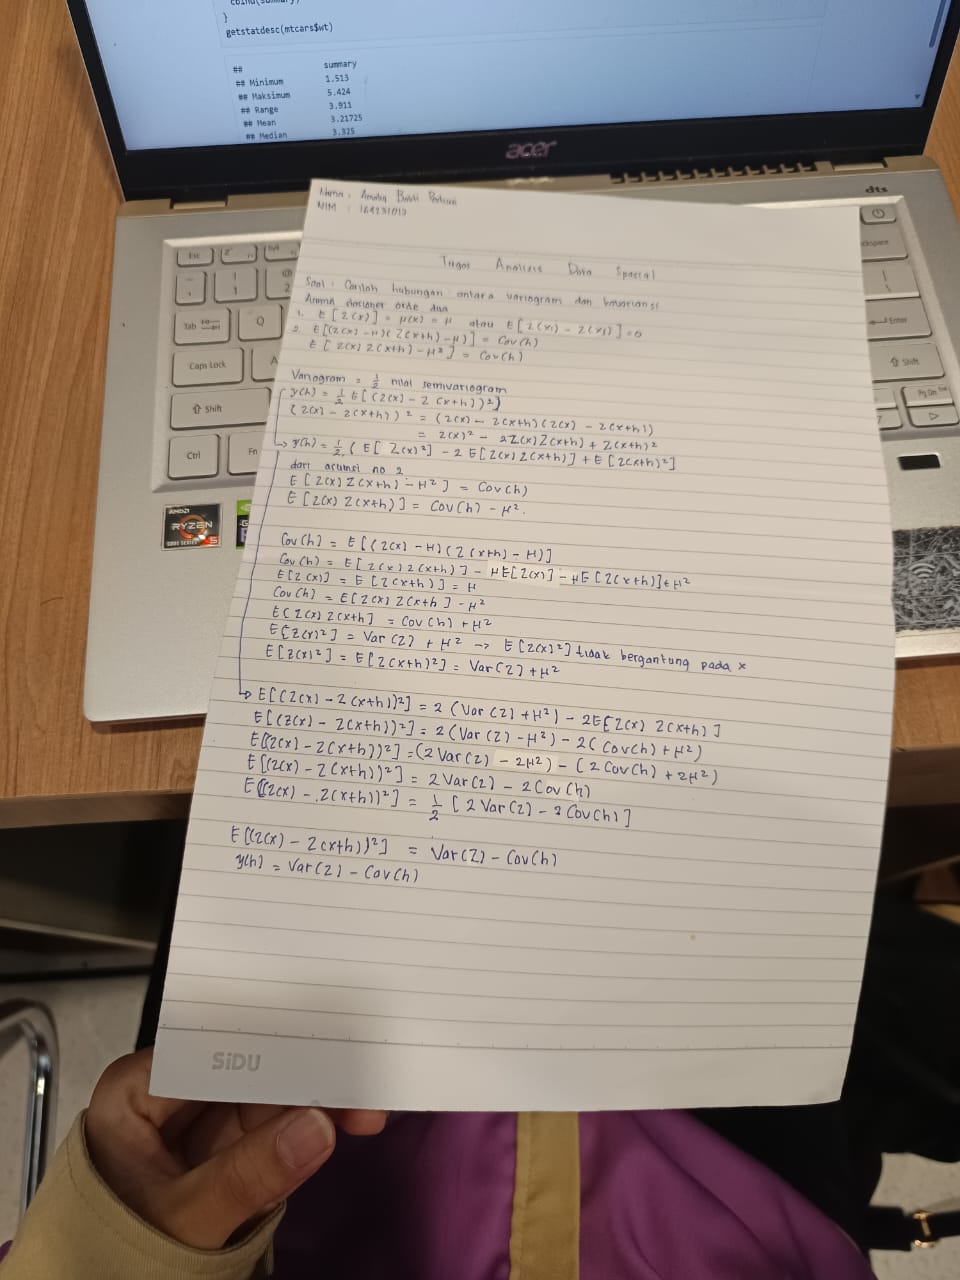 }
getstatdesc(mtcars$wt)
## summary
## Minimum 1.513
## Maksimum 5.424
## Range 3.911
## Mean 3.21725
## Median 3.325
acer
dts
Esc
Tab
Q
Caps Lock
A
Shift
Ctrl
Fn
Enter
Shift
AMD
RYZEN
5
Nama :
NIM : 164231013
Tugas Analisis Data Spasial
Soal : Carilah hubungan antara variogram dan kovariansi
Asumsi stasioner orde dua
1. E[Z(x)] = μ(x) = μ atau E[Z(x1) - Z(x1)] = 0
2. E[(Z(x) - μ)(Z(x+h) - μ)] = Cov(h)
E[Z(x) Z(x+h) - μ²] = Cov(h)
Variogram = 1/2 nilai semivariogram
γ(h) = 1/2 E[(Z(x) - Z(x+h))²]
(Z(x) - Z(x+h))² = (Z(x) - Z(x+h)(Z(x) - Z(x+h))
= Z(x)² - 2Z(x)Z(x+h) + Z(x+h)²
γ(h) = 1/2 (E[Z(x)²] - 2 E[Z(x) Z(x+h)] + E[Z(x+h)²]
dari asumsi no 2
E[Z(x) Z(x+h) - μ²] = Cov(h)
E[Z(x) Z(x+h)] = Cov(h) - μ².
Cov(h) = E[(Z(x) - μ)(Z(x+h) - μ)]
Cov(h) = E[Z(x) Z(x+h)] - μE[Z(x)] - μE[Z(x+h)] + μ²
E[Z(x)] = E[Z(x+h)] = μ
Cov(h) = E[Z(x) Z(x+h] - μ²
E[Z(x) Z(x+h] = Cov(h) + μ²
E[Z(x)²] = Var(Z) + μ² -> E[Z(x)²] tidak bergantung pada x
E[Z(x)²] = E[Z(x+h)²] = Var(Z) + μ²
E[(Z(x) - Z(x+h))²] = 2(Var(Z) + μ²) - 2E[Z(x) Z(x+h)]
E[(Z(x) - Z(x+h))²] = 2(Var(Z) - μ²) - 2(Cov(h) + μ²)
E[(Z(x) - Z(x+h))²] = (2Var(Z) - 2μ²) - (2Cov(h) + 2μ²)
E[(Z(x) - Z(x+h))²] = 2Var(Z) - 2Cov(h)
E[(Z(x) - Z(x+h))²] = 1/2 [2Var(Z) - 2Cov(h)]
E[(Z(x) - Z(x+h))²] = Var(Z) - Cov(h)
γ(h) = Var(Z) - Cov(h)
SiDU